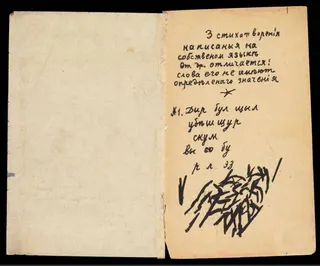 3 стихотворенія
написаныя на
собственом языкѣ
от др. отличаетcя:
слова его не имеют
определенаго значенія
*
№1. Дыр бул щыл
убѣшщур
скум
вы со бу
р л эз